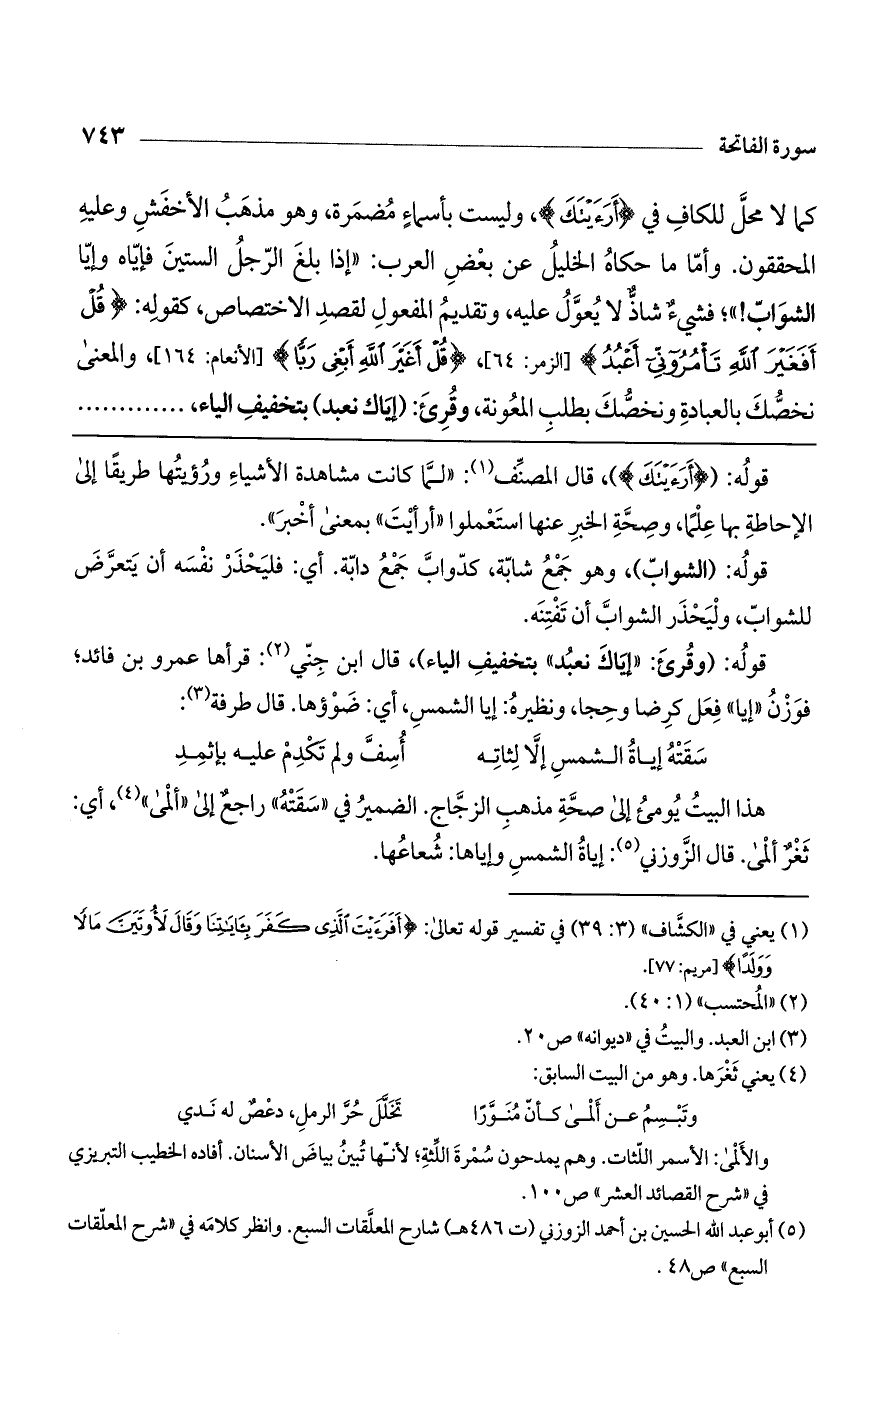 سورة الفاتحة ٧٤٣
كما لا محلَّ للكافِ في ﴿أَرَءَيْتَكَ﴾، وليست بأسماءٍ مُضمَرة، وهو مذهَبُ الأخفَشِ وعليهِ
المحققون. وأمّا ما حكاهُ الخليلُ عن بعْضِ العرب: «إذا بلغَ الرّجلُ الستينَ فإيّاه وإيّا
الشوَابّ!»؛ فشيءٌ شاذٌّ لا يُعوَّلُ عليه، وتقديمُ المفعولِ لقصدِ الاختصاص، كقولِه: ﴿قُلْ
أَفَغَيْرَ ٱللَّهِ تَأْمُرُوٓنِّىٓ أَعْبُدُ﴾ [الزمر: ٦٤]، ﴿قُلْ أَغَيْرَ ٱللَّهِ أَبْغِى رَبًّا﴾ [الأنعام: ١٦٤]، والمعنىٰ
نخصُّكَ بالعبادةِ ونخصُّكَ بطلبِ المعُونة، وقُرِئ: (إيَاك نعبد) بتخفيفِ الياء، .............
قولُه: (﴿أَرَءَيْتَكَ﴾)، قال المصنِّف(١): «لـمَّا كانت مشاهدة الأشياءِ ورُؤيتُها طريقًا إلىٰ
الإحاطةِ بها عِلْمًا، وصِحَّةِ الخبرِ عنها استَعْملوا «أرأيْتَ» بمعنىٰ أخْبرَ».
قولُه: (الشوابّ)، وهو جَمْعُ شابّة، كدّوابَّ جَمْعُ دابّة. أي: فليَحْذَرْ نفْسَه أن يَتعرَّضَ
للشوابّ، ولْيَحْذَر الشوابَّ أن تَفْتِنَه.
قولُه: (وقُرئَ: «إيَاكَ نعبُد» بتخفيفِ الياء)، قال ابن جِنّي(٢): قرأها عمرو بن فائد؛
فوَزْنُ «إيا» فِعَل كرِضا وحِجا، ونظيرهُ: إيا الشمسِ، أي: ضَوْؤها. قال طرفة(٣):
سَقَتْهُ إيـاةُ الـشمسِ إلَّا لِثاتِـه أُسِفَّ ولم تَكْدِمْ عليـه بإثمِـدِ
هذا البيتُ يُومئُ إلىٰ صحَّةِ مذهبِ الزجَّاج. الضميرُ في «سَقَتْهُ» راجعٌ إلىٰ «ألمْىٰ»(٤)، أي:
ثَغْرٌ ألمْىٰ. قال الزَّوزني(٥): إياةُ الشمسِ وإياها: شُعاعُها.
(١) يعني في «الكشَّاف» (٣: ٣٩) في تفسير قوله تعالىٰ: ﴿أَفَرَءَيْتَ ٱلَّذِى كَفَرَ بِـَٔايَـٰتِنَا وَقَالَ لَأُوتَيَنَّ مَالًا
وَوَلَدًا﴾ [مريم: ٧٧].
(٢) «المُحتسب» (١: ٤٠).
(٣) ابن العبد. والبيتُ في «ديوانه» ص٢٠.
(٤) يعني ثَغْرَها. وهو من البيت السابق:
وتَبْـسِمُ عـن ألمْـىٰ كـأنّ مُنَـوَّرًا تَخَلَّلَ حُرَّ الرملِ، دعْصٌ له نَـدي
والألمْىٰ: الأسمر اللّثات. وهم يمدحون سُمْرةَ اللِّثةِ؛ لأنـّها تُبينُ بياضَ الأسنان. أفاده الخطيب التبريزي
في «شرح القصائد العشر» ص١٠٠.
(٥) أبو عبد الله الحسين بن أحمد الزوزني (ت ٤٨٦هـ) شارح المعلَّقات السبع. وانظر كلامَه في «شرح المعلّقات
السبع» ص٤٨.